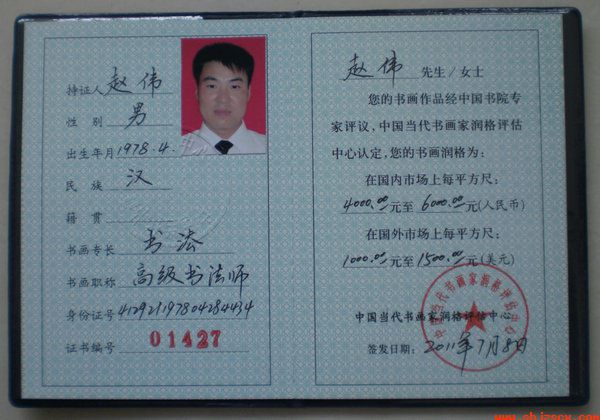 持证人 赵伟
性 别 男
出生年月 1978.4.
民 族 汉
籍 贯
书画专长 书法
书画职称 高级书法师
身份证号 412921197804284434
证书编号 01427
赵伟 先生/女士
您的书画作品经中国书院专
家评议、中国当代书画家润格评估
中心认定,您的书画润格为:
在国内市场上每平方尺:
4000.00元至 6000.00元(人民币)
在国外市场上每平方尺:
1000.00元至1500.00元(美元)
中国当代书画家润格评估中心
中国当代书画家润格评估中心
签发日期: 2011年7月8日